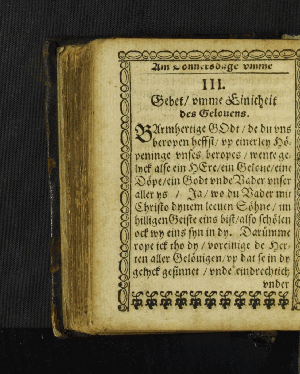 Am Donnersdage vmme
III.
Gebet / vmme Einicheit
des Gelouens.
BArmhertige GOdt / de du vns
beropen heffst / vp einerley Hö-
peninge vnses beropes / wente ge-
lyck alse ein HEre / ein Geloue / eine
Döpe / ein Godt vnde Vader vnser
aller ys / Ja / wo du Vader mit
Christo dynem leeuen Söhne / im
hilligen Geiste eins bist / also schölen
ock wy eins syn in dy. Darümme
rope ick tho dy / voreinige de Her-
ten aller Gelöuigen / vp dat se in dy
gelyck gesinnet / vnde eindrechtich
vnder